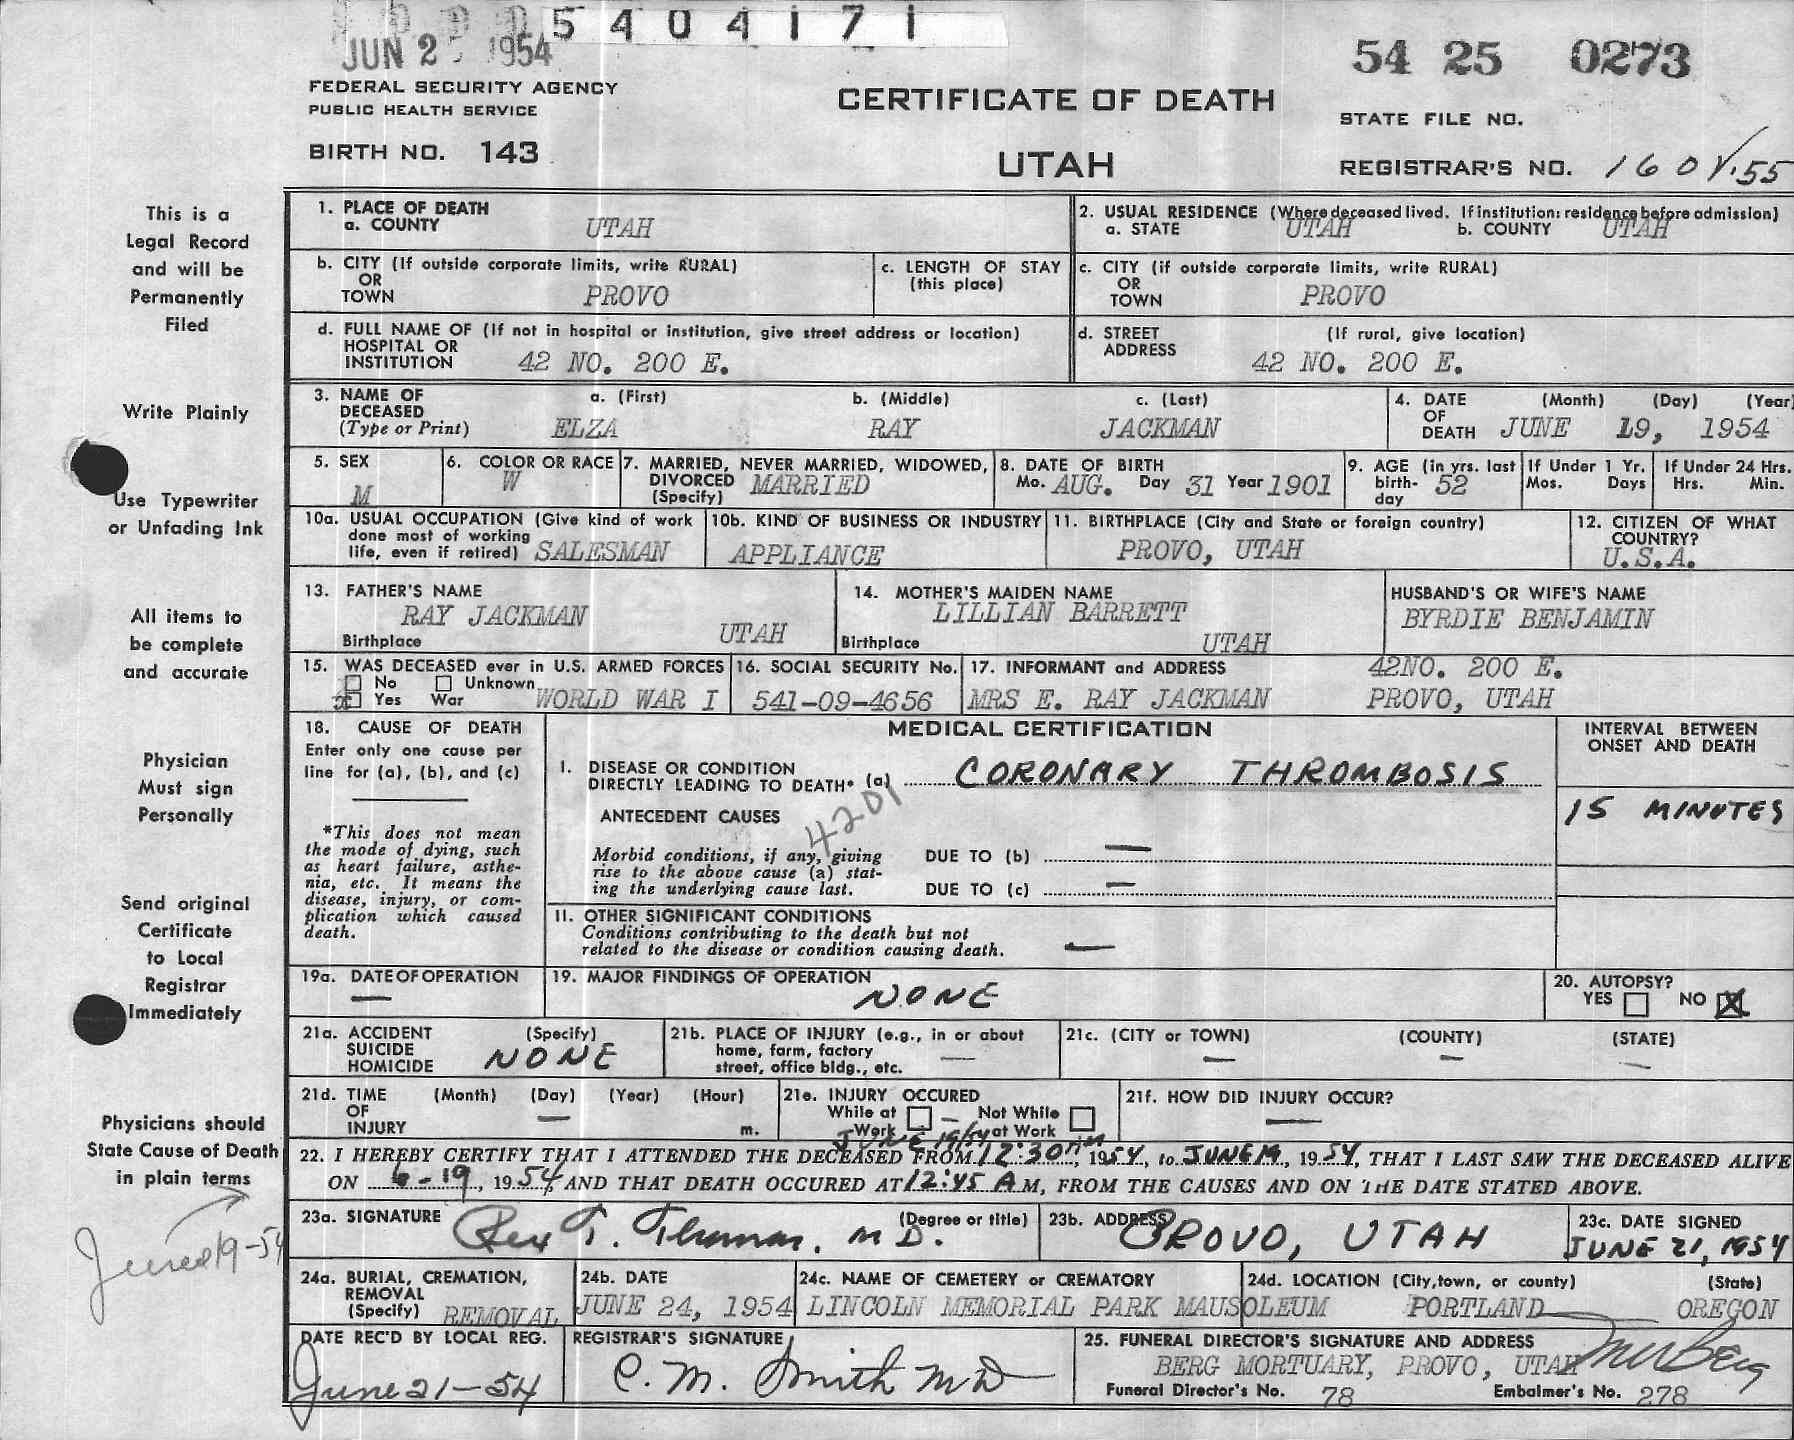 5404171
JUN 2 1954
54 25 0273
FEDERAL SECURITY AGENCY
PUBLIC HEALTH SERVICE
CERTIFICATE OF DEATH
STATE FILE NO.
BIRTH NO. 143
UTAH
REGISTRAR'S NO. 160 55
This is a
Legal Record
and will be
Permanently
Filed
Write Plainly
Use Typewriter
or Unfading Ink
All items to
be complete
and accurate
Physician
Must sign
Personally
Send original
Certificate
to Local
Registrar
Immediately
Physicians should
State Cause of Death
in plain terms
June 19-54
1. PLACE OF DEATH
a. COUNTY UTAH
2. USUAL RESIDENCE (Where deceased lived. If institution: residence before admission)
a. STATE UTAH b. COUNTY UTAH
b. CITY (If outside corporate limits, write RURAL)
OR
TOWN PROVO
c. LENGTH OF STAY
(this place)
c. CITY (if outside corporate limits, write RURAL)
OR
TOWN PROVO
d. FULL NAME OF (If not in hospital or institution, give street address or location)
HOSPITAL OR
INSTITUTION 42 NO. 200 E.
d. STREET (If rural, give location)
ADDRESS 42 NO. 200 E.
3. NAME OF a. (First) b. (Middle) c. (Last)
DECEASED
(Type or Print) ELZA RAY JACKMAN
4. DATE (Month) (Day) (Year)
OF
DEATH JUNE 19, 1954
5. SEX
M
6. COLOR OR RACE
W
7. MARRIED, NEVER MARRIED, WIDOWED,
DIVORCED MARRIED
(Specify)
8. DATE OF BIRTH
Mo. AUG. Day 31 Year 1901
9. AGE (in yrs. last
birth- 52
day
If Under 1 Yr.
Mos. Days
If Under 24 Hrs.
Hrs. Min.
10a. USUAL OCCUPATION (Give kind of work
done most of working
life, even if retired) SALESMAN
10b. KIND OF BUSINESS OR INDUSTRY
APPLIANCE
11. BIRTHPLACE (City and State or foreign country)
PROVO, UTAH
12. CITIZEN OF WHAT
COUNTRY?
U.S.A.
13. FATHER'S NAME
RAY JACKMAN
Birthplace UTAH
14. MOTHER'S MAIDEN NAME
LILLIAN BARRETT
Birthplace UTAH
HUSBAND'S OR WIFE'S NAME
BYRDIE BENJAMIN
15. WAS DECEASED ever in U.S. ARMED FORCES
No Unknown
x Yes War WORLD WAR I
16. SOCIAL SECURITY No.
541-09-4656
17. INFORMANT and ADDRESS 42NO. 200 E.
MRS E. RAY JACKMAN PROVO, UTAH
18. CAUSE OF DEATH
Enter only one cause per
line for (a), (b), and (c)
*This does not mean
the mode of dying, such
as heart failure, asthe-
nia, etc. It means the
disease, injury, or com-
plication which caused
death.
MEDICAL CERTIFICATION
INTERVAL BETWEEN
ONSET AND DEATH
I. DISEASE OR CONDITION
DIRECTLY LEADING TO DEATH* (a) CORONARY THROMBOSIS
15 MINUTES
4201
ANTECEDENT CAUSES
Morbid conditions, if any, giving
rise to the above cause (a) stat-
ing the underlying cause last.
DUE TO (b) —
DUE TO (c) —
II. OTHER SIGNIFICANT CONDITIONS
Conditions contributing to the death but not
related to the disease or condition causing death. —
19a. DATE OF OPERATION
—
19. MAJOR FINDINGS OF OPERATION
NONE
20. AUTOPSY?
YES NO X
21a. ACCIDENT (Specify)
SUICIDE
HOMICIDE NONE
21b. PLACE OF INJURY (e.g., in or about
home, farm, factory —
street, office bldg., etc.
21c. (CITY or TOWN) (COUNTY) (STATE)
— — —
21d. TIME (Month) (Day) (Year) (Hour)
OF —
INJURY m.
21e. INJURY OCCURED
While at — Not While
Work at Work
21f. HOW DID INJURY OCCUR?
—
JUNE 19/54
22. I HEREBY CERTIFY THAT I ATTENDED THE DECEASED FROM 12:30 AM, 1954, to JUNE 19, 1954, THAT I LAST SAW THE DECEASED ALIVE
ON 6-19, 1954, AND THAT DEATH OCCURED AT 12:45 A M, FROM THE CAUSES AND ON THE DATE STATED ABOVE.
23a. SIGNATURE (Degree or title)
Rex T. Thomas, M D.
23b. ADDRESS
PROVO, UTAH
23c. DATE SIGNED
JUNE 21, 1954
24a. BURIAL, CREMATION,
REMOVAL
(Specify) REMOVAL
24b. DATE
JUNE 24, 1954
24c. NAME OF CEMETERY or CREMATORY
LINCOLN MEMORIAL PARK MAUSOLEUM
24d. LOCATION (City, town, or county) (State)
PORTLAND OREGON
DATE REC'D BY LOCAL REG.
June 21-54
REGISTRAR'S SIGNATURE
C. M. Smith MD
25. FUNERAL DIRECTOR'S SIGNATURE AND ADDRESS
BERG MORTUARY, PROVO, UTAH Berg
Funeral Director's No. 78 Embalmer's No. 278